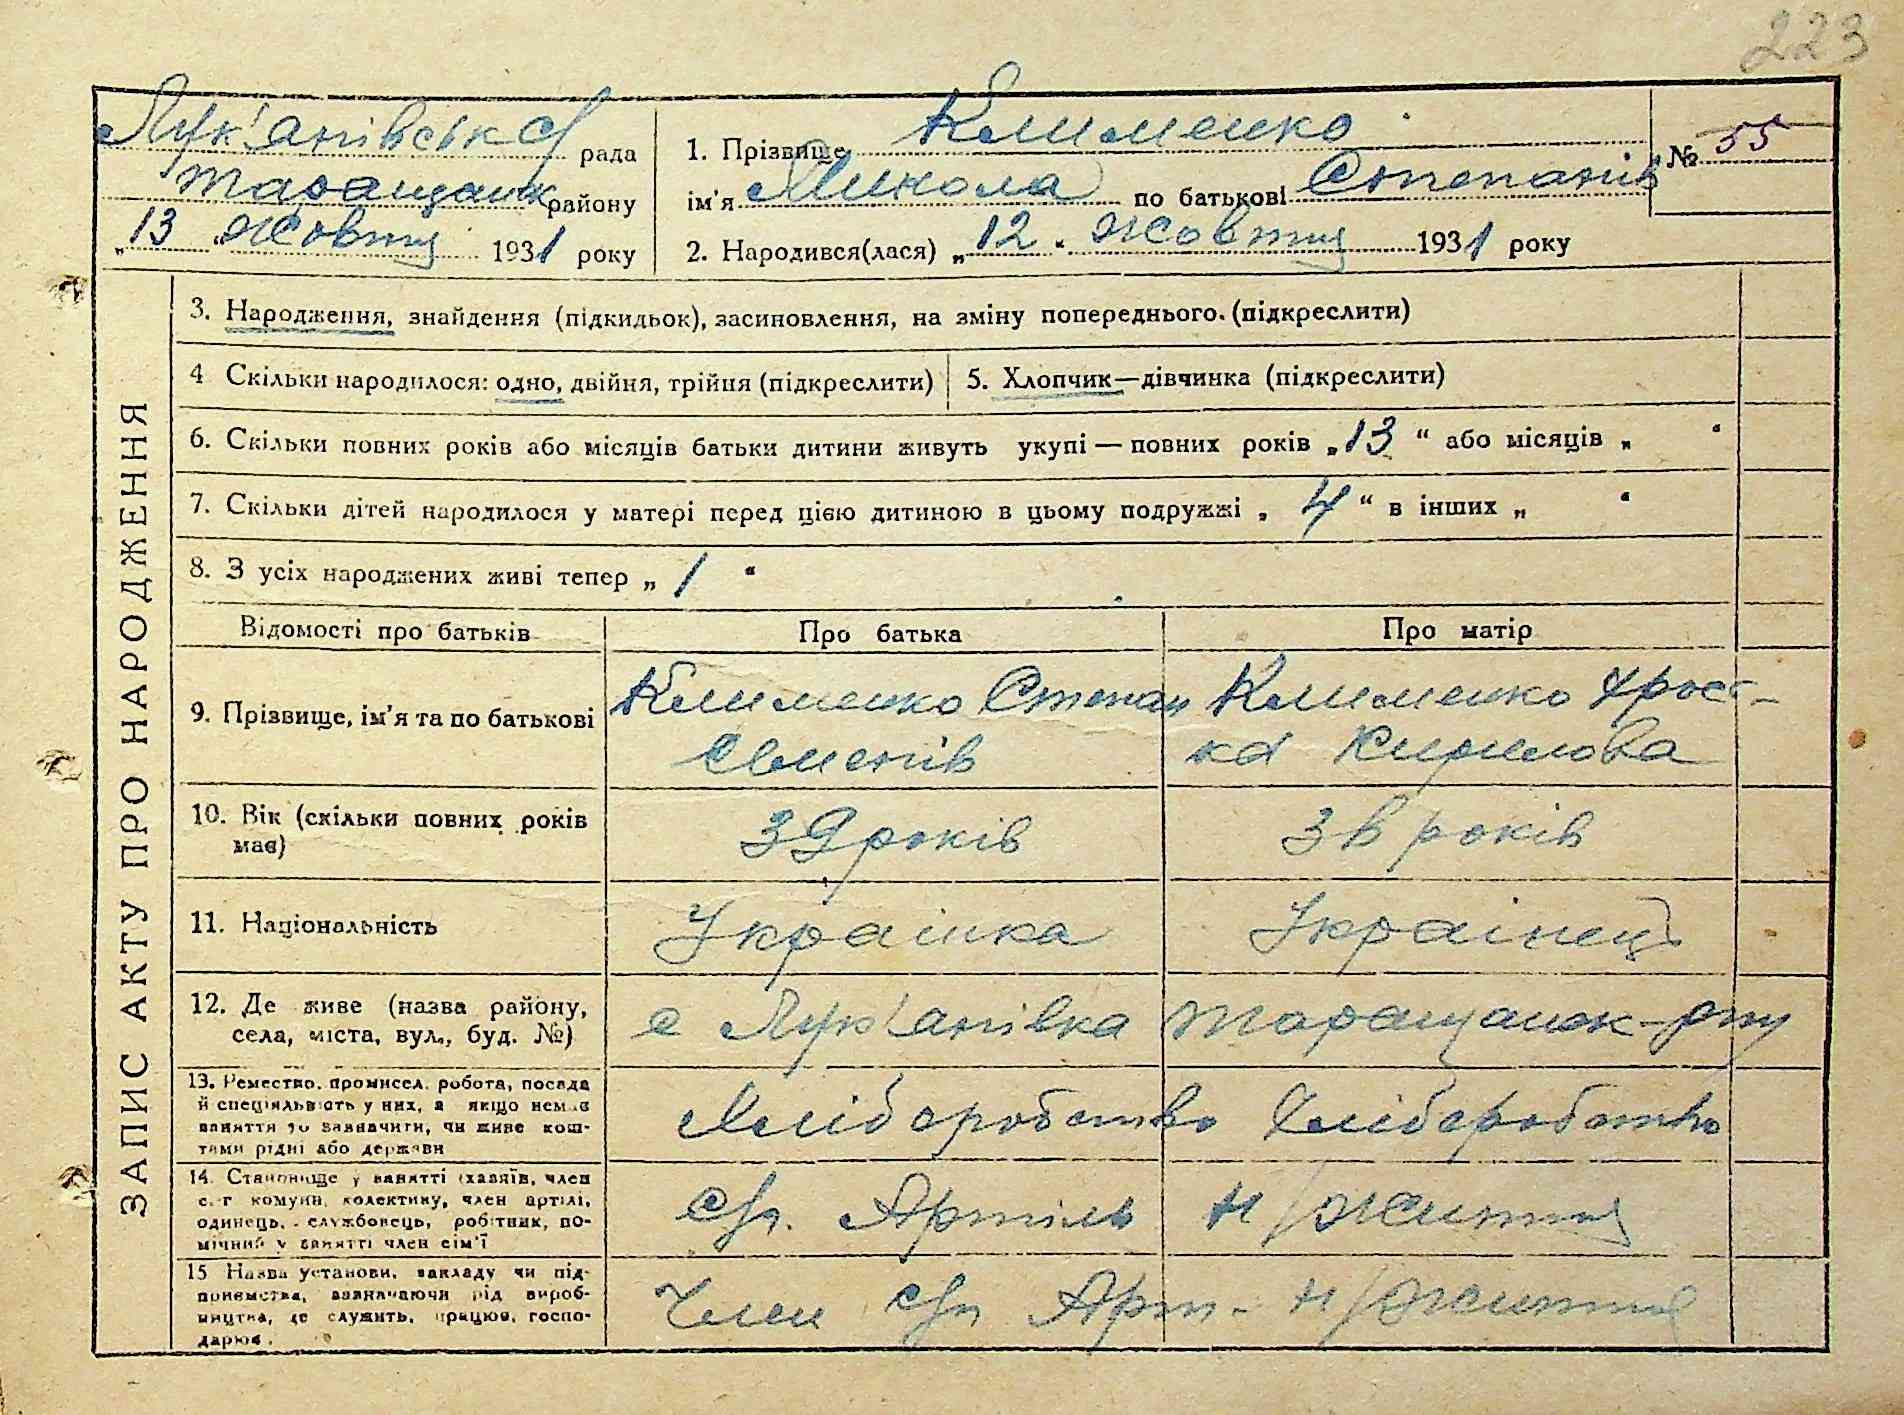 223
Лук'янівська рада
Таращанськ району
„13“ жовтня 1931 року
1. Прізвище Клименко
ім'я Микола по батькові Степанів
№ 55
2. Народився(лася) „12“ жовтня 1931 року
ЗАПИС АКТУ ПРО НАРОДЖЕННЯ
3. Народження, знайдення (підкидьок), засиновлення, на зміну попереднього. (підкреслити)
4 Скільки народилося: одно, двійня, трійня (підкреслити)
5. Хлопчик—дівчинка (підкреслити)
6. Скільки повних років або місяців батьки дитини живуть укупі — повних років „13“ або місяців „ “
7. Скільки дітей народилося у матері перед цією дитиною в цьому подружжі „ 4 “ в інших „ “
8. З усіх народжених живі тепер „ 1 “
Відомості про батьків
Про батька
Про матір
9. Прізвище, ім'я та по батькові
Клименко Степан
Клименко Хрост-
ка Кирилова
10. Вік (скільки повних років
має)
39 років
36 років
11. Національність
Українка
Українець
12. Де живе (назва району,
села, міста, вул., буд. №)
с Лук'янівка Таращанськ р-ну
13. Ремество, промисел, робота, посада
й спеціяльність у них, а якщо немає
заняття то зазначити, чи живе кош-
тами рідні або держави
Хліборобство
Хліборобство
14. Становище у занятті (хазяїн, член
с.-г комуни, колективу, член артілі,
одинець, службовець, робітник, по-
мічний у занятті член сім'ї
Артіль
15 Назва установи, закладу чи під-
приємства, зазначаючи рід вироб-
ництва, де служить, працює, госпо-
дарює.
Член Арт-